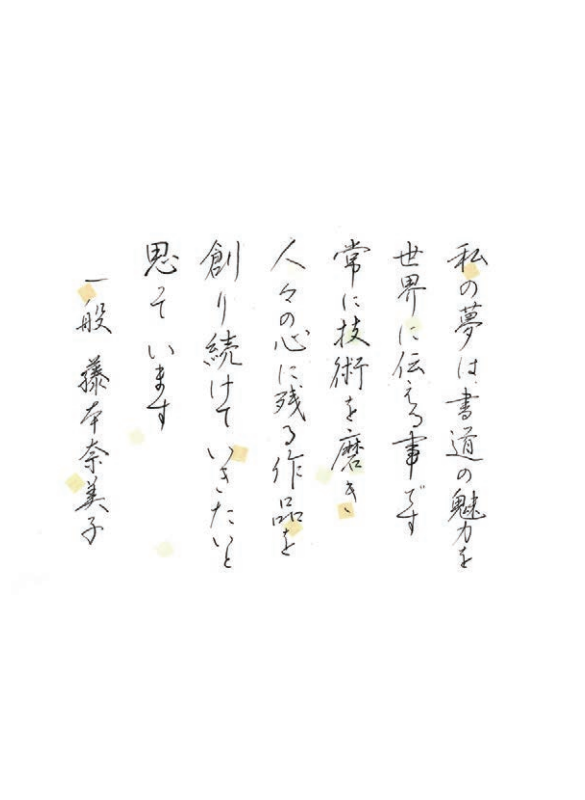 私の夢は書道の魅力を
世界に伝える事です
常に技術を磨き
人々の心に残る作品を
創り続けていきたいと
思っています
一般 藤本奈美子